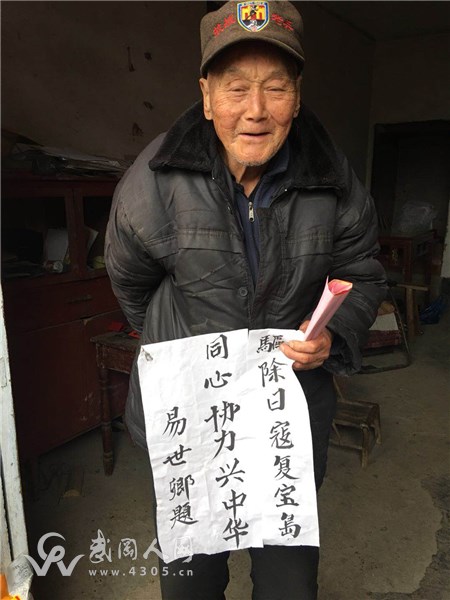 驅除日寇复宝岛
同心协力兴中华
易世卿题
武冈人网
www.4305.cn